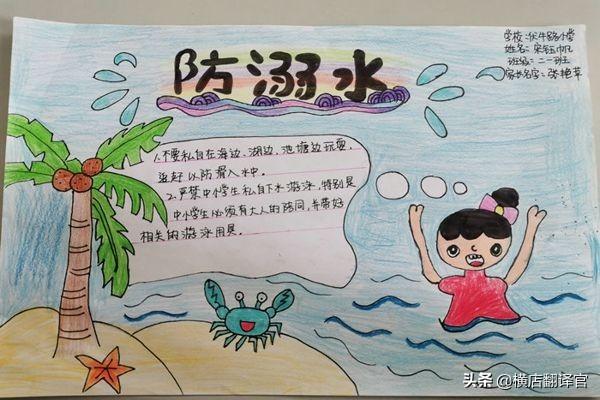 防溺水
学校:伏牛路小学
姓名:
班级:二一班
家长名字:张艳萍
1.不要私自在海边、湖边、池塘边玩耍,
以防滑入水中。
2.严禁中小学生私自下水游泳,特别是
中小学生必须有大人的陪同,并带好
相关的游泳用具。
头条@横店翻译官